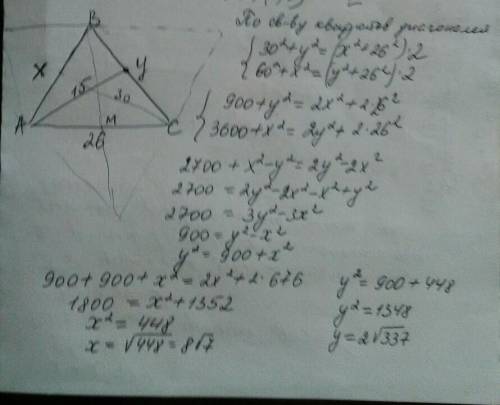 По св-ву квадратов диагоналей
{ 30² + y² = (x² + 26²)·2
{ 60² + x² = (y² + 26²)·2
{ 900 + y² = 2x² + 2·26²
{ 3600 + x² = 2y² + 2·26²
2700 + x² - y² = 2y² - 2x²
2700 = 2y² - 2x² - x² + y²
2700 = 3y² - 3x²
900 = y² - x²
y² = 900 + x²
900 + 900 + x² = 2x² + 2·676
1800 = x² + 1352
x² = 448
x = √448 = 8√7
y² = 900 + 448
y² = 1348
y = 2√337
B
x
y
15
30
A
M
C
26